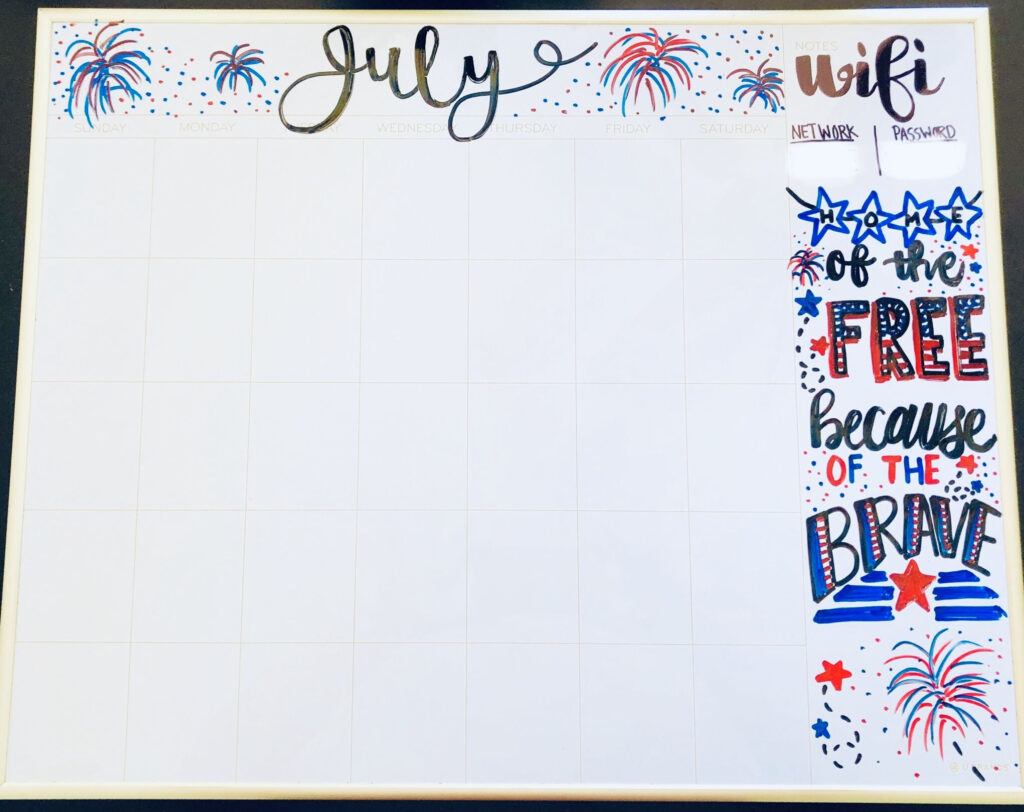 July
SUNDAY MONDAY WEDNESDAY THURSDAY FRIDAY SATURDAY
NOTES
wifi
NETWORK | PASSWORD
HOME
of the
FREE
because
OF THE
BRAVE